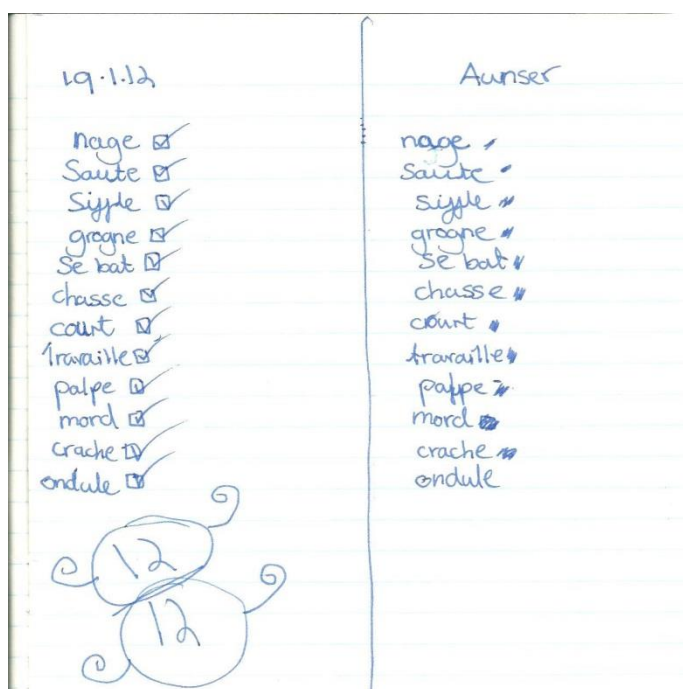 19.1.12
nage
Saute
Siffle
grogne
se bat
chasse
court
travaille
palpe
mord
crache
ondule
12
12
Aunser
nage
Saute
siffle
grogne
se bat
chasse
court
travaille
palpe
mord
crache
ondule